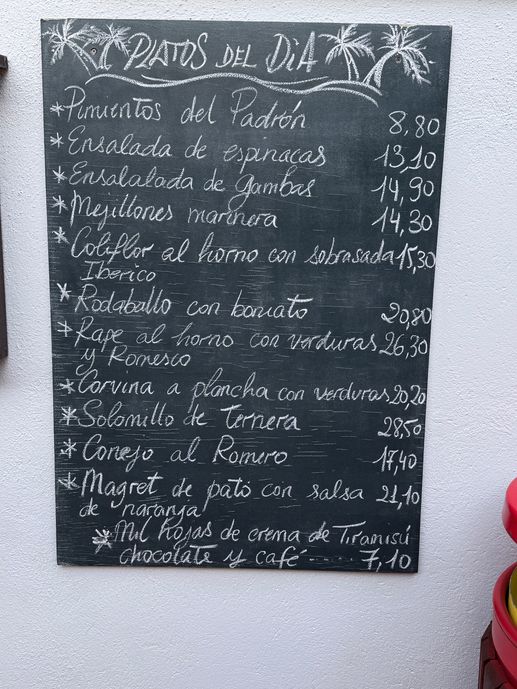 PLATOS DEL DiA
* Pimientos del Padrón 8,80
* Ensalada de espinacas 13,10
* Ensalalada de gambas 14,90
* Mejillones marinera 14,30
* Coliflor al horno con sobrasada 15,30
Iberico
* Rodaballo con boniato 20,80
* Rape al horno con verduras 26,30
y Romesco
* Corvina a plancha con verduras 20,20
* Solomillo de Ternera 28,50
* Conejo al Romero 17,40
* Magret de pato con salsa 21,10
de naranja
* Mil hojas de crema de Tiramisú
chocolate y café ...... 7,10